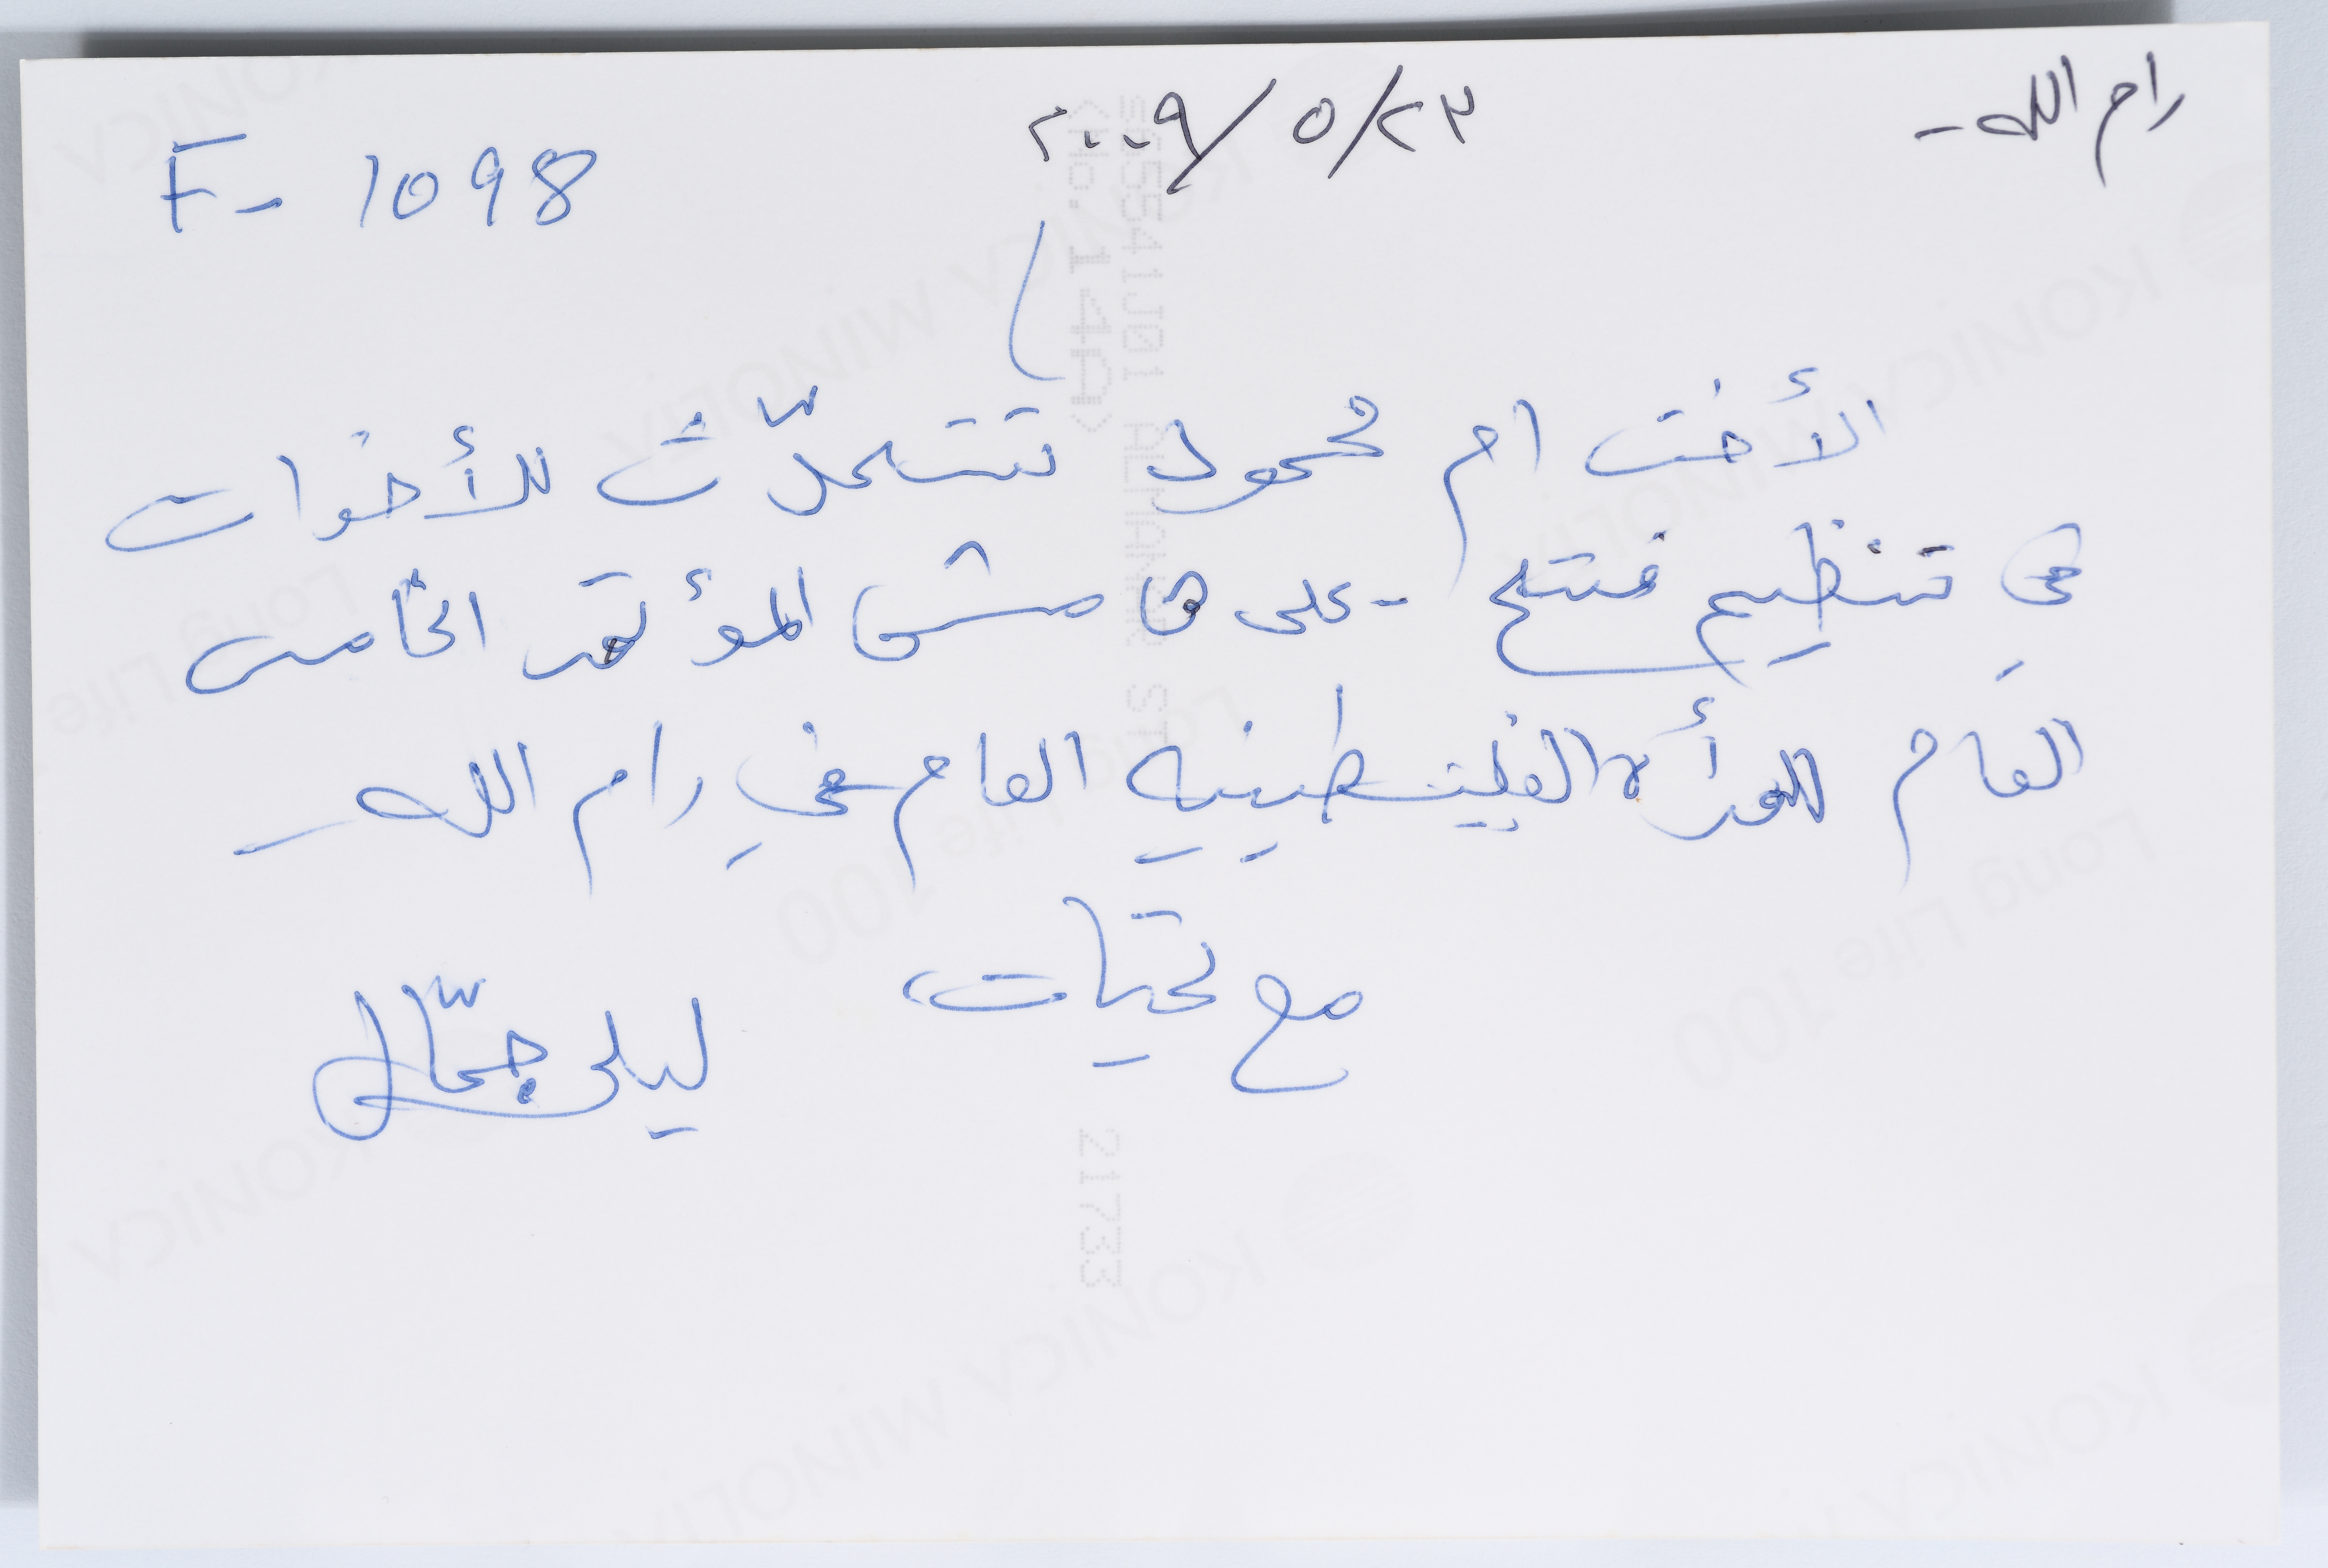 رام الله - ٢٣/٥/٢٠٠٩
F- 1098
الأخت ام محمود تتحدّث للأخوات
في تنظيم فتح - على هامش المؤتمر الخامس
العام للمرأة الفلسطينيه العام في رام الله -
مع تحيات
ليلى جمّال
KONICA MINOLTA
Long Life 100
21733